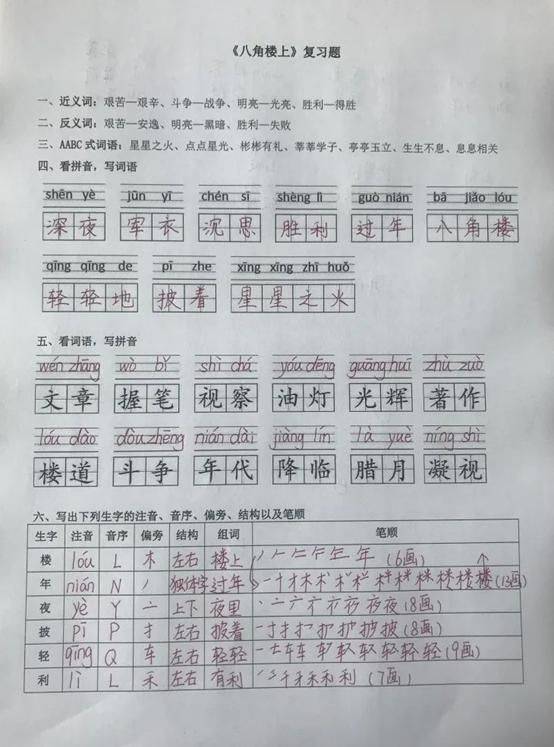 《八角楼上》复习题
一、近义词：艰苦—艰辛、斗争—战争、明亮—光亮、胜利—得胜
二、反义词：艰苦—安逸、明亮—黑暗、胜利—失败
三、AABC 式词语：星星之火、点点星光、彬彬有礼、莘莘学子、亭亭玉立、生生不息、息息相关
四、看拼音，写词语
shēn yè jūn yī chén sī shèng lì guò nián bā jiǎo lóu
深夜 军衣 沉思 胜利 过年 八角楼
qīng qīng de pī zhe xīng xīng zhī huǒ
轻轻地 披着 星星之火
五、看词语，写拼音
wén zhāng wò bǐ shì chá yóu dēng guāng huī zhù zuò
文章 握笔 视察 油灯 光辉 著作
lóu dào dòu zhēng nián dài jiàng lín là yuè níng shì
楼道 斗争 年代 降临 腊月 凝视
六、写出下列生字的注音、音序、偏旁、结构以及笔顺
生字 注音 音序 偏旁 结构 组词 笔顺
楼 lóu L 木 左右 楼上 年 (6画)
年 nián N 丿 独体字 过年 楼 (13画)
夜 yè Y 亠 上下 夜里 夜 (8画)
披 pī P 扌 左右 披着 披 (8画)
轻 qīng Q 车 左右 轻轻 轻 (9画)
利 lì L 禾 左右 有利 利 (7画)